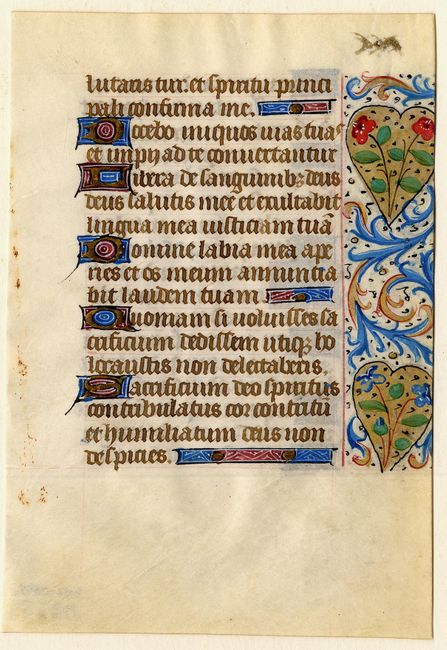 lutaris tui: et spiritu princi
pali confirma me.
Docebo iniquos vias tuas
et impij ad te convertantur
Libera de sanguinibz deus
deus salutis mee et exultabit
lingua mea iusticiam tuā
Domine labia mea ape
ries et os meum annuncia
bit laudem tuam.
Quoniam si voluisses sa
crificium dedissem utiqz ho
locaustis non delectaberis.
Sacrificium deo spiritus
contribulatus cor contritū
et humiliatum deus non
despicies.